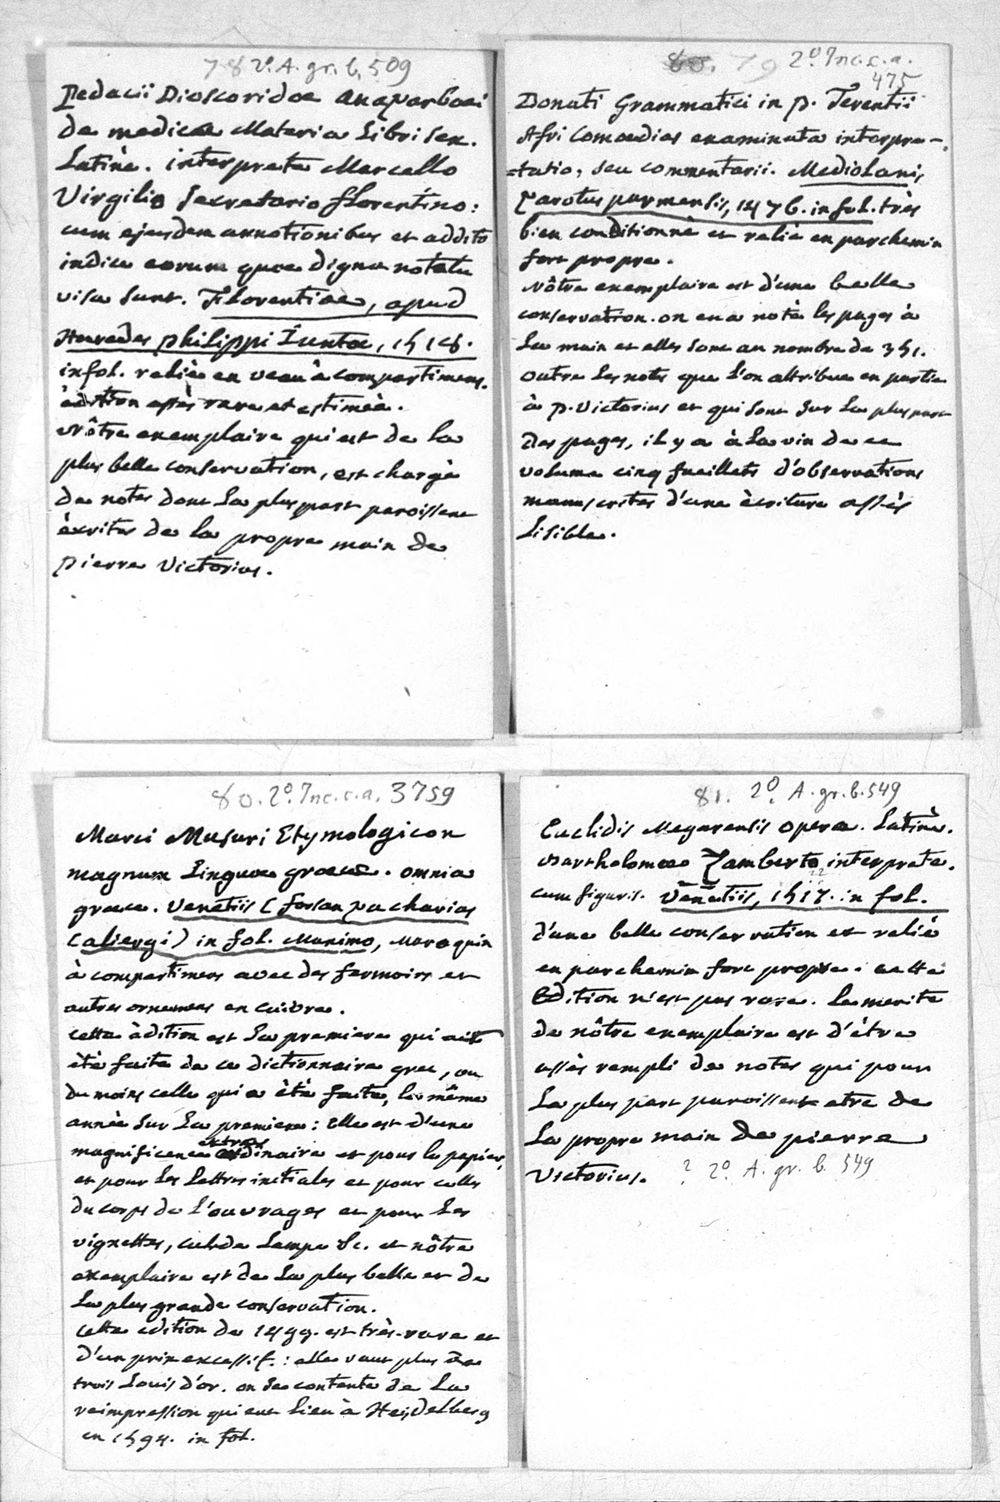 78 2º. A. gr. b. 509
Pedacii Dioscoridae Anazarbaei
de medica Materia Libri sex.
Latinè. interprete Marcello
Virgilio Secretario florentino:
cum ejusdem annotionibus et addito
indice eorum quae digna notatu
visa sunt. Florentiae, apud
Haeredes philippi Iuntae, 1518.
infol. relié en veau à compartimens.
èdition assès rare et estimeè.
Nôtre exemplaire qui est de la
plus belle conservation, est chargè
de notes dont la plus part paroissent
ècrites de la propre main de
pierre Victorius.
80. 79 2º Inc. c. a.
475
Donati Grammatici in p. Terentii
Afri Comoedias examinata interpre-
tatio, seu commentarii. Mediolani,
Zarotus parmensis, 1476. in fol. très
bien conditionnè et reliè en parchemin
fort propre.
Nôtre exemplaire est d'une belle
conservation. on en a notè les pages à
la main et elles sont au nombre de 351.
outre les notes que l'on attribue en partie
à p. Victorius et qui sont sur la plus part
des pages, il y a à la vin de ce
volume cinq fueillets d'observations
manuscrites d'une ècriture assès
lisible.
80. 2º. Inc. c. a. 3759
Marci Musuri Etymologicon
magnum Linguae graecae. omnia
graece. Venetiis (forsan Zacharias
Caliergi) in fol. Maximo, Maroquin
à compartimens avec des fermoirs et
autres ornemens en cuivre.
cette èdition est la premiere qui ait
ètè faite de ce dictionnaire grec, ou
du moins celle qui a ètè faite, la même
annèe sur la premiere: Elle est d'une
magnificence extraordinaire et pour le papier,
et pour les Lettres initiales et pour celles
du corps de l'ouvrages et pour les
vignettes, culs de Lampe &c. et nôtre
exemplaire est de la plus belle et de
la plus grande conservation.
cette edition de 1499. est très-rare et
d'un prix excessif.: elle vaut plus de
trois Louis d'or. on se contente de la
reimpression qui eut lieu à Heidelberg
en 1594. in fol.
81. 2º. A. gr. b. 549
Euclidis Megarensis opera. Latinè.
Bartholomaeo Zamberto interprete.
cum figuris. Venetiis, 1517. in fol.
d'une belle conservation et reliè
en parchemin fort propre. cette
Edition n'est pas rare. le merite
de nôtre exemplaire est d'être
assès rempli de notes qui pour
la plus part paroissent etre de
la propre main de pierre
Victorius. ? 2º. A. gr. b. 549